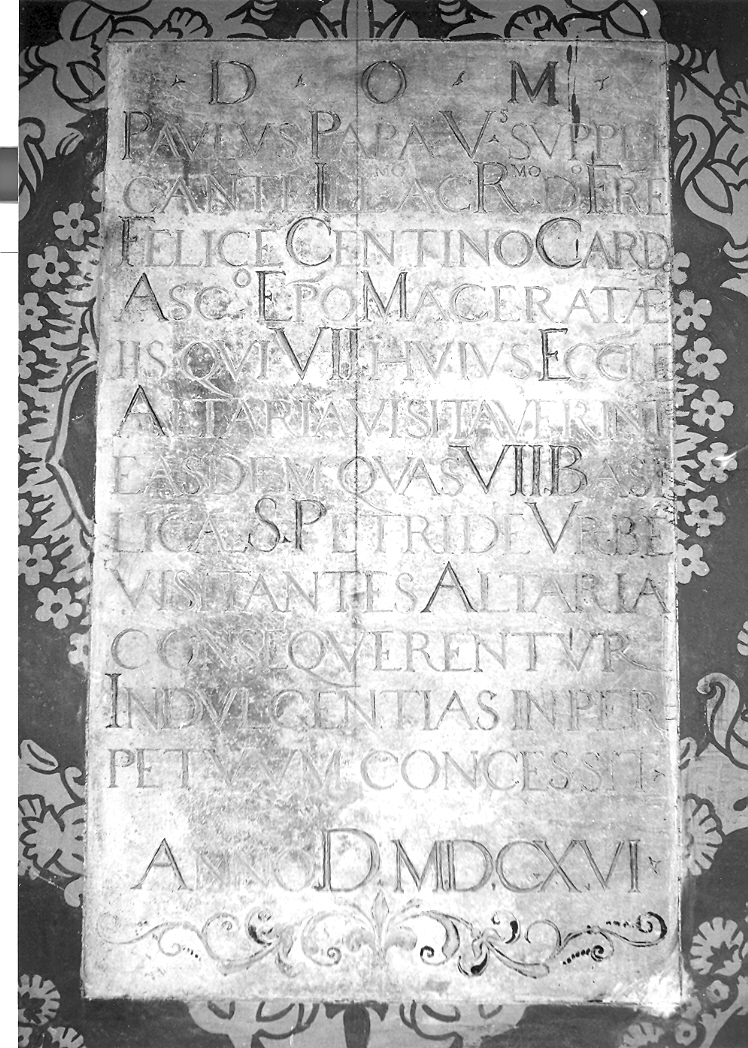 D · O · M ·
PAVLVS PAPA V.S SVPPLE
CANTE ILL.MO AC R.MO D.O FRE
FELICE CENTINO CARD
ASC.O EPO MACERATÆ
IIS QVI VII HVIVS ECCLE
ALTARIA VISITAVERINT
EASDEM QVAS VII BASI
LICÆ S. PETRI DE VRBE
VISITANTES ALTARIA
CONSEQVERENTVR
INDVLGENTIAS IN PER
PETVVM CONCESSIT
ANNO D. M.D.CXVI ·